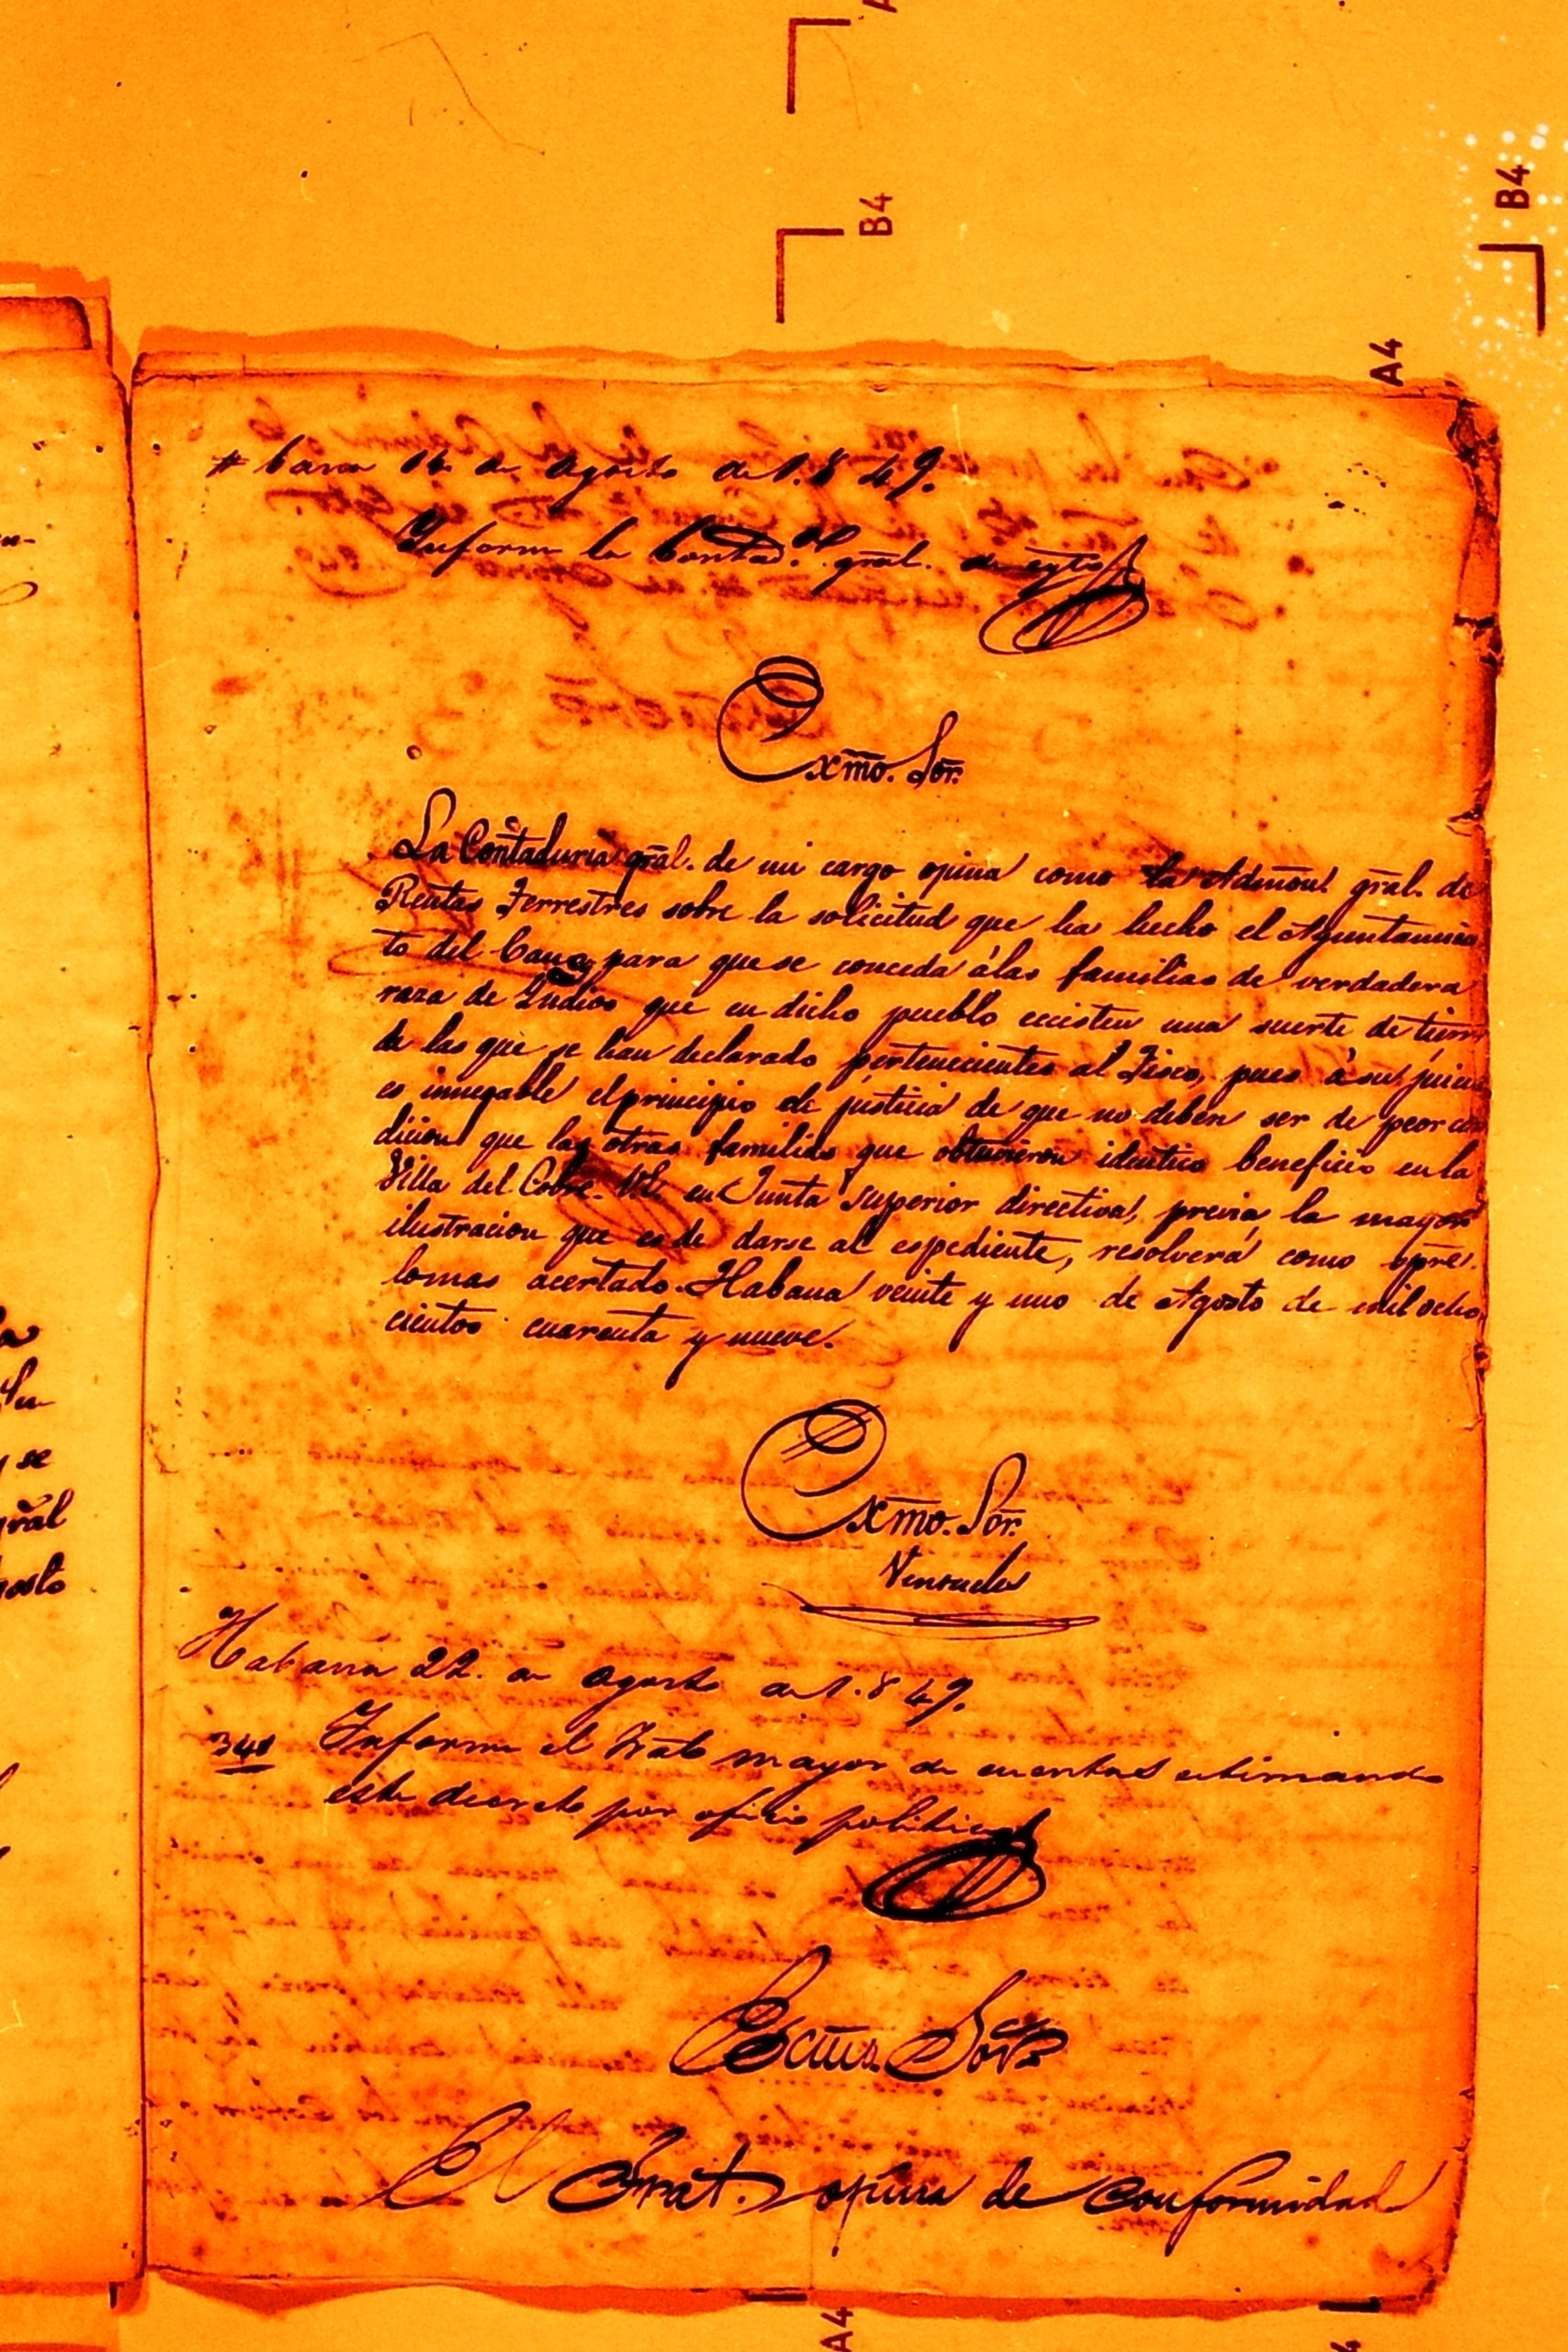 A
B4
B4
A4
Habana 14 de Agosto de 1.849.
Informe la Contad.ª gral. de egto
Exmo. Sor.
La Contaduria gral. de mi cargo opina como la Admon. gral. de
Rentas Terrestres sobre la solicitud que ha hecho el Ayuntamien
to del Caney para que se conceda á las familias de verdadera
raza de Indios que en dicho pueblo ecsisten una suerte de tierra
de las que se han declarado pertenecientes al Fisco, pues á su juicio
es innegable el principio de justicia de que no deben ser de peor con
dicion que las otras familias que obtuvieron identico beneficio en la
Villa del Cobre. VE. en Junta superior directiva, previa la mayor
ilustracion que es de darse al espediente, resolverá como opre.
lo mas acertado. Habana veinte y uno de Agosto de mil ocho
cientos cuarenta y nueve.
Exmo. Sor.
Habana 22. de Agosto de 1.849.
Informe el Trál. mayor de cuentas
este decreto por oficio politico
Ecmo. Sor.
El Trat. opina de conformidad
un-
la
Su
y se
gral
gosto
A4